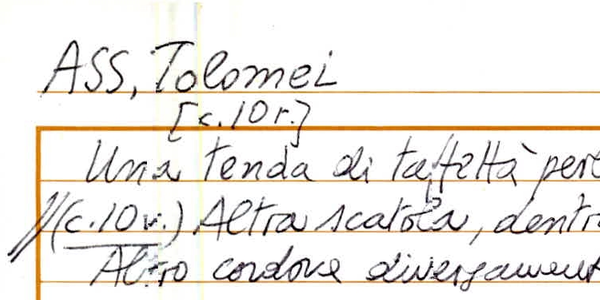 ASS, Tolomei
[c.10 r.]
Una tenda di taffettà per
//(c.10v.) Altra scatola, dentr
Altro cordone diversament